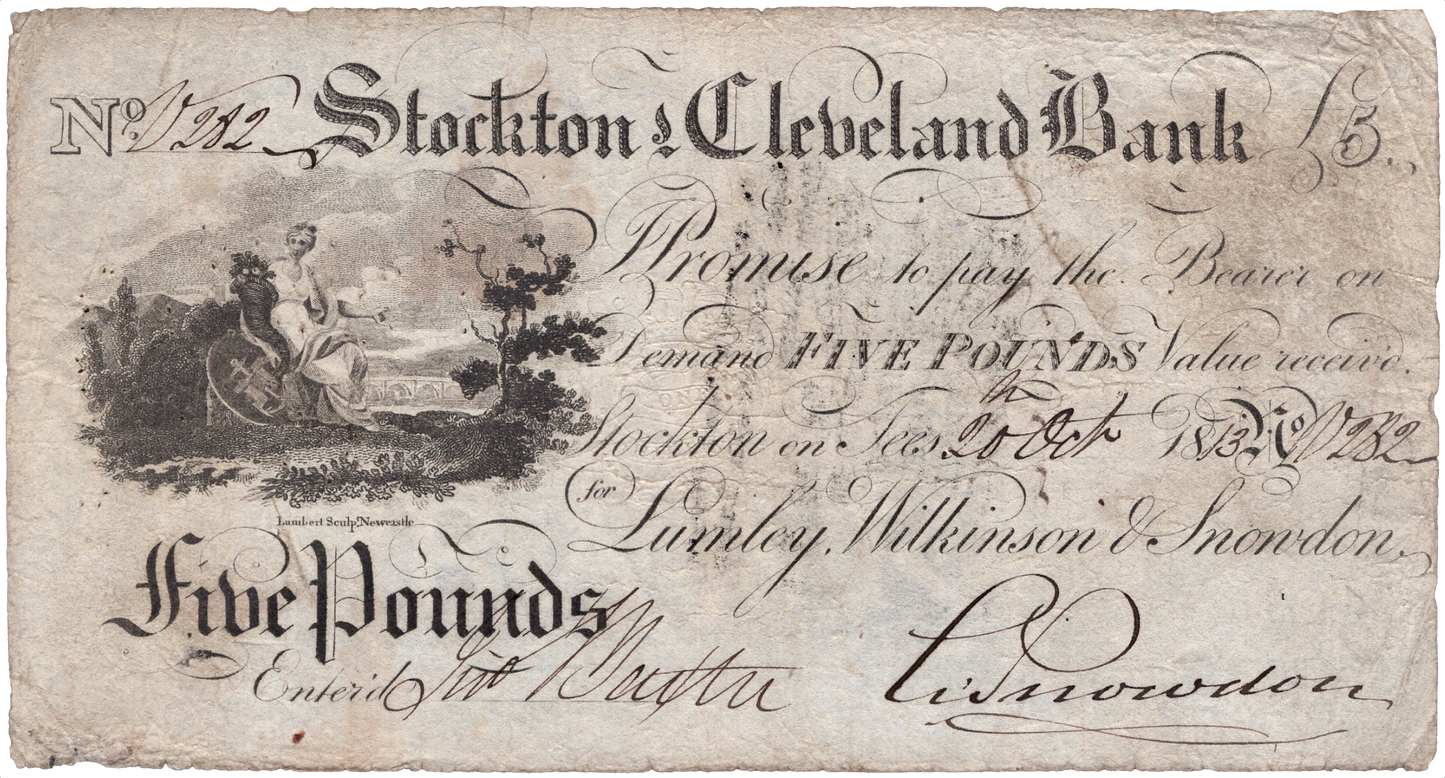 No. V282 Stockton & Cleveland Bank £5
I Promise to pay the Bearer on
Demand FIVE POUNDS Value receiv'd.
Stockton on Tees 20th Octr 1813 No V282
for Lumley, Wilkinson & Snowdon.
Lambert Sculp. Newcastle
Five Pounds
Enter'd
Snowdon